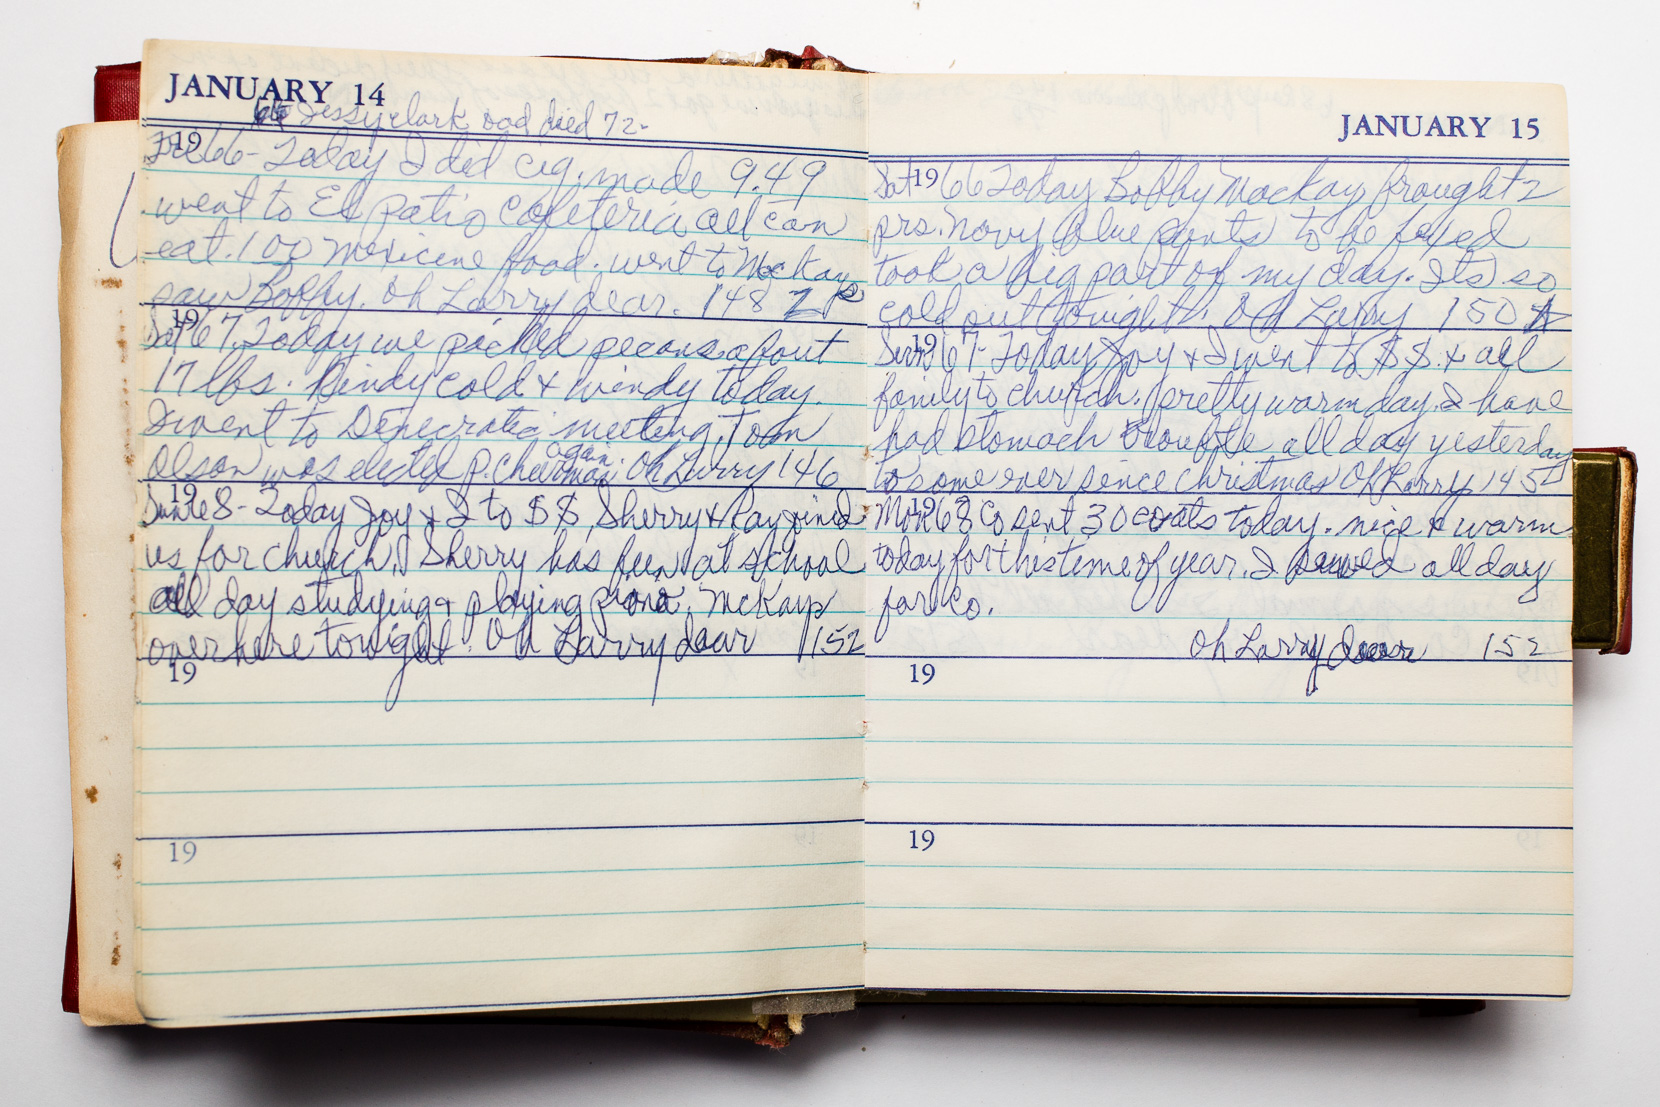 JANUARY 14
Jessy Clark dad died 72-
19
Fri 66- Today I did cig. made 9.49
went to El patio Cafeteria all can
eat. 1 00 mexicine food. went to MacKays
saw Bobby. Oh Larry dear. 148
19
Sat 67. Today we picked pecans about
17 lbs. Kindy cold & windy today.
I went to Democratic meeting. Tom
again
Olson was elected p. chairman. Oh Larry 146
19
Sun 68- Today Joy & I to $ $, Sherry & Ray joined
us for church. Sherry has been at school
all day studying & playing piano. McKays
over here tonight. Oh Larry dear 152
19
19
JANUARY 15
Sat 19 66 Today Bobby Mackay brought 2
prs. navy blue pants to be fixed
took a big part of my day. Its so
cold out tonight. Oh Larry 150
19
Sun 67- Today Joy & I went to $ $. & all
family to church. pretty warm day. I have
had stomach trouble all day yesterday
to some ever since christmas Oh Larry 145
Mon 19 68 Co sent 30 coats today. nice & warm
today for this time of year. I sewed all day
for Co.
Oh Larry dear 152
19
19